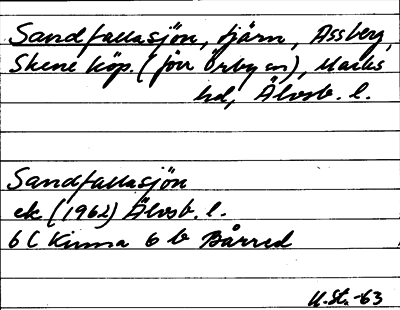 Sandfallasjön, tjärn, Assberg,
Skene köp. (förr Örby sn), Marks
hd, Älvsb. l.
Sandfallasjön
ek (1962) Älvsb. l.
6 C Kinna 6 b Bårred
U.St.-63